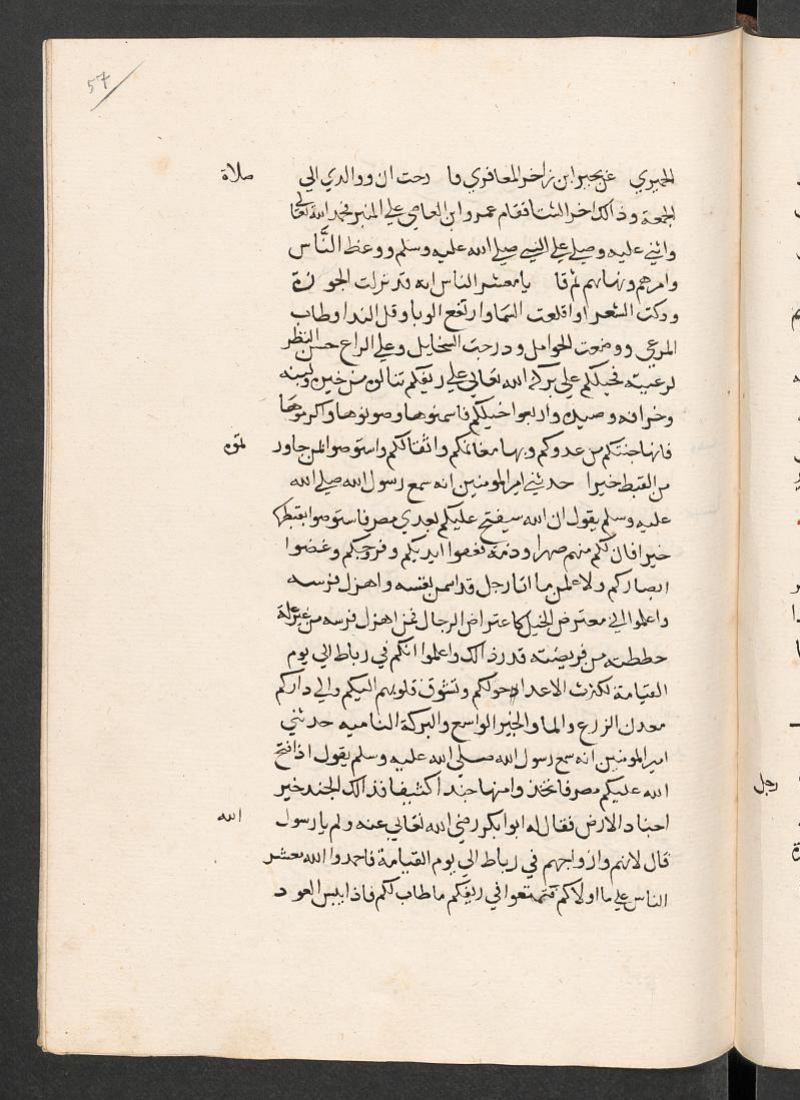 57
الحميري عن بحير ابن زاخر المعافري قا رحت ان ووالدي الي صلاة
الجمعة وذالك اخر الشتا فقام عمرو ابن العاصي علي المنبر فحمد الله تعالي
واثني عليه وصلي علي النبي صلي الله عليه وسلم ووعظ النَّاس
وامرهم ونهاهم ثم قا يا معشر الناس انه قد نزلت الجوزة
ودكت الشعرا واقلعت السما وارتفع الوبا وقل الندا وطاب
المرعي ووضعت الحوامل ودرجت السخايل وعلي الراع حسن النظر
لرعيته فحيلكم علي بركة الله تعالي علي ريفكم تنالون من خيره ولبنه
وخرافه وصيده واربعوا خيلكم فاسمنوها وصونوها واكرموها
فانها جنتكم من عدوكم وبها مغانمكم واثقالكم واستوصوا لمن جاورتموه
من القبط خيرا حدثني امير المومنين انه سمع رسول الله صلي الله
عليه وسلم يقول ان الله سيفتح عليكم بعدي مصر فاستوصوا بقبطها
خيرا فان لكم منهم صهرا وذمة فعفوا ايديكم وفروجكم وغضوا
ابصاركم ولا علمن ما اتا رجل قد اسمن نفسه واهزل فرسه
واعلموا اني معترض الخيل كاعتراض الرجال فمن اهزل فرسه من غير علة
حططته من فريضته قدر ذالك واعلموا انكم في رباط الي يوم
القيامة لكثرت الاعدا حولكم وتشوق قلوبهم اليكم والي داركم
معدن الزرع والما والخير الواسع والبركة الناميه حدثني
امير المومنين انه سمع رسول الله صلي الله عليه وسلم يقول اذا فتح
الله عليكم مصر فاتخذوا منها جندا كثيفا فذالك الجند خير
اجناد الارض فقال له ابوا بكر رضي الله تعالي عنه ولم يارسول الله
قال لانهم وازواجهم في رباط الي يوم القيامة فاحمدوا الله معشر
الناس علي ما اولاكم فتمتعوا في ريفكم ما طاب لكم فاذا يبس العود
رجل